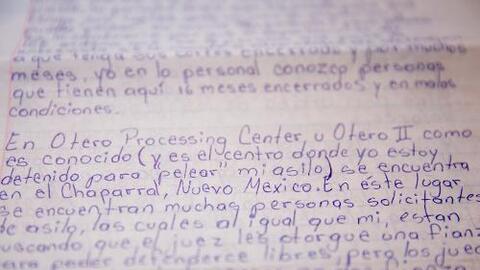 meses, yo en lo personal conozco personas
que tienen aquí 16 meses encerrados y en malas
condiciones.
En Otero Processing Center, u Otero II como
es conocido (y es el centro donde yo estoy
detenido para "pelear" mi asilo) se encuentra
en el Chaparral, Nuevo Mexico. En éste lugar
se encuentran muchas personas solicitantes
de asilo, las cuales al igual que mi, estan
buscando que el juez les otorgue una fianz
para poder defenderce libres, pero los juec